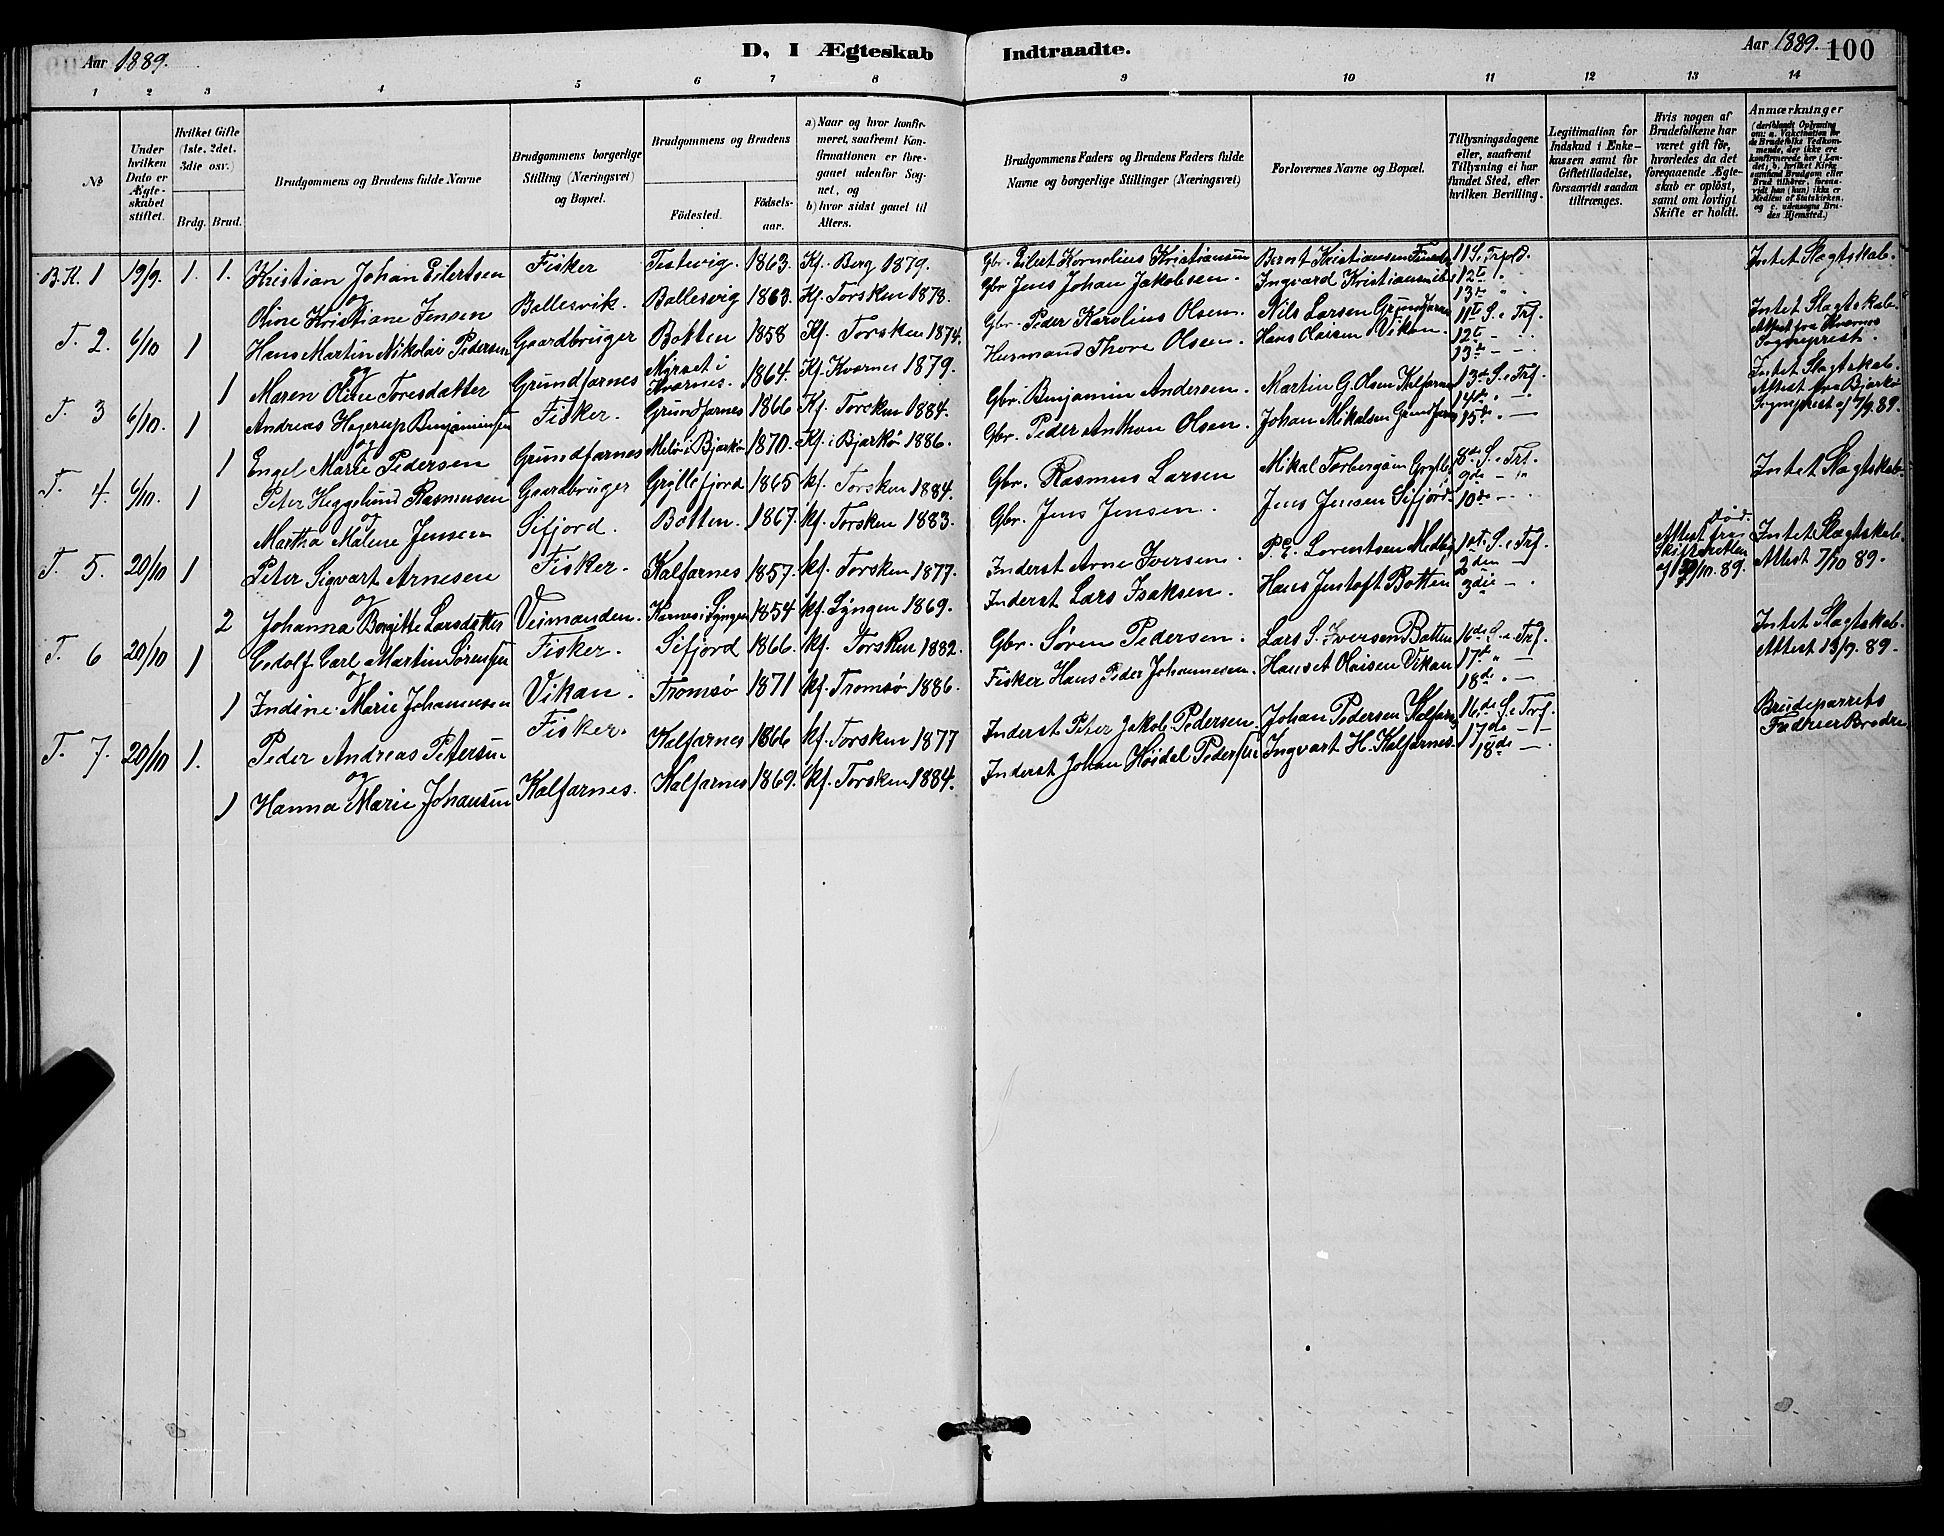 Aar 1889.
D, I Ægteskab Indtraadte.
Aar 1889. 100
1 2 3 4 5 6 7 8 9 10 11 12 13 14
No
Under hvilken Dato er Ægteskabet stiftet.
Hvilket Gifte (1ste, 2det, 3dte osv.)
Brdg. Brud.
Brudgommens og Brudens fulde Navne
Brudgommens borgerlige Stilling (Næringsvei) og Bopæl.
Brudgommens og Brudens
Födested. Födselsaar.
a) Naar og hvor konfirmeret, saafremt Konfirmationen er foregaaet udenfor Sognet, og
b) hvor sidst gaaet til Alters.
Brudgommens Faders og Brudens Faders fulde Navne og borgerlige Stillinger (Næringsvei)
Forlovernes Navne og Bopæl.
Tillysningsdagene eller, saafremt Tillysning ei har fundet Sted, efter hvilken Bevilling.
Legitimation for Indskud i Enkekassen samt for Giftetilladelse, forsaavidt saadan tiltrænges.
Hvis nogen af Brudefolkene har været gift för, hvorledes da det foregaaende Ægteskab er oplöst, samt om lovligt Skifte er holdt.
Anmærkninger
(deriblandt Oplysning om: a. Vakcination for de Brudefolks Vedkommende, der ikke ere konfirmerede her i Landet; b. hvilket Kirkesamfund Brudgom eller Brud tilhører, forsaavidt han (hun) ikke er Medlem af Statskirken, og c. udensogns Brudes Hjemsted.)
B.K. 1 19/9. 1. 1. Kristian Johan Eilertsen Fisker Testvig. 1863. Kf. Berg 1879. Gbr. Eilert Kornelius Kristiansen Bernt Kristiansen 11 S. e Trfold. Intet Slagtskab.
og
Oline Kristiane Jensen Ballesvik. Ballesvig 1863. Kf. Torsken 1878. Gbr Jens Johan Jakobsen. Ingvard Kristiansen 12te 13de
T. 2. 6/10 1 Hans Martin Nikolai Pedersen Gaardbruger Botten 1858 Kf. Torsken 1874. Gbr. Peder Karolius Olsen. Nils Larsen Grundfarnes 11te S. e Trf. Intet Slagtskab.
og
1 Maren Oline Toresdatter Grundfarnes Myrset i Kvernes. 1864. Kf. Kvernes 1879. Husmand Thore Olsen. Hans Olaisen Viken. 12te 13de Attest fra Kvernes Sogneprest.
T. 3 6/10. 1 Andreas Hagerup Benjaminsen Fisker. Grundfarnes 1866 Kf. Torsken 1884. Gbr. Benjamin Andersen. Martin G. Olsen Kalfarnes 13de S. e Trf. Intet Slagtskab.
og
1 Engel Marie Pedersen Grundfarnes Melö i Bjarkö 1870. Kf. i Bjarkö 1886. Gbr. Peder Anthon Olsen. Johan Mikalsen Grundfarnes 14de 15de Attest fra Bjarkö Sogneprest af 7/9. 89.
T. 4 6/10. 1 Peter Heggelund Rasmussen Gaardbruger Gryllefjord 1865 kf. Torsken 1884. Gbr. Rasmus Larsen Mikal Torbergsen Grylle 8de S. e Trf. Intet Slagtskab.
og
Martha Malene Jensen Sifjord. Botten. 1867. kf. Torsken 1883. Gbr. Jens Jensen. Jens Jensen Sifjord. 9de 10de
T. 5. 20/10 1 Peter Sigvart Arnesen Fisker. Kalfarnes 1857. kf. Torsken 1877. Inderst Arne Iversen P. E. Lorentsen Medby 1ste S. e Trf. Död. Attest fra Skifteretten Intet Slagtskab. Attest 7/10 89.
og
2 Johanna Borgitte Larsdatter Veimanden. Karnes i Lyngen 1854 kf. Lyngen 1869. Inderst Lars Isaksen. Hans Jentoft Botten 2den 3die
T. 6 20/10 1 Edolf Carl Martin Sørensen Fisker. Sifjord 1866. kf. Torsken 1882. Gbr. Søren Pedersen. Lars S. Iversen Botten 16de S. e Trf. Intet Slagtskab. Attest 13/9. 89.
og
1 Indine Marie Johannesen Vikan. Tromsø 1871 kf. Tromsø 1886. Fisker Hans Peder Johannesen. Hans Olaisen Vikan 17de 18de
T. 7. 20/10 1. Peder Andreas Petersen Fisker. Kalfarnes 1866 kf. Torsken 1877 Inderst Peter Jakob Pedersen. Johan Pedersen Kalfarn 16de S. e Trf. Brudeparrets Fædre er Brødre
og
1 Hanna Marie Johansen Kalfarnes. Kalfarnes 1869. kf. Torsken 1884. Inderst Johan Høidal Pedersen Ingvart H. Kalfarnes. 17de 18de